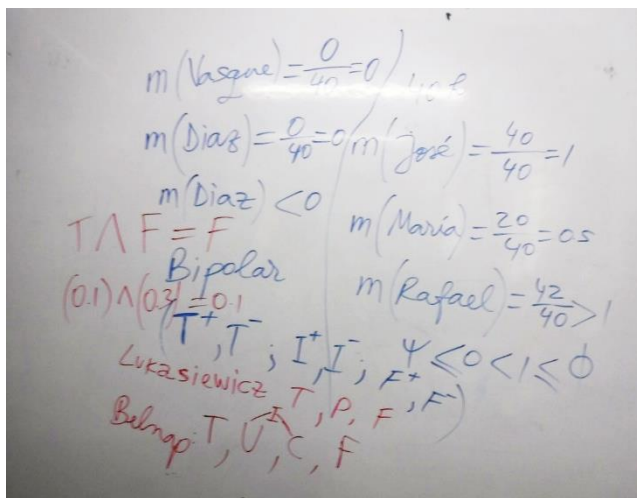 m(Vasque) = 0/40 = 0
m(Diaz) = 0/40 = 0
m(José) = 40/40 = 1
m(Diaz) < 0
m(María) = 20/40 = 05
T ∧ F = F
Bipolar
m(Rafael) = 42/40 > 1
(0.1) ∧ (0.3) = 0.1
(T⁺, T⁻; I⁺, I⁻; F⁺, F⁻)
Ψ ≤ 0 < 1 ≤ ϕ
Lukasiewicz T, P, F
Belnap: T, U, C, F
I